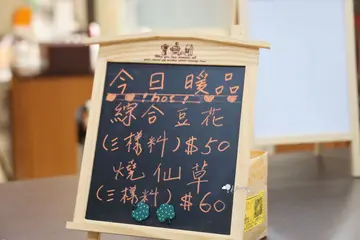 今日暖品
hot
綜合豆花
(三樣料)$50
燒仙草
(三樣料)$60